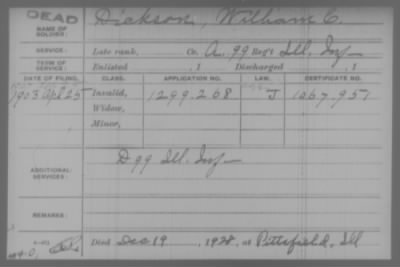 DEAD
NAME OF SOLDIER: Dickson, William C.
SERVICE: Late rank, Co. A. 99 Reg't Ill. Inf
TERM OF SERVICE: Enlisted , 1 Discharged , 1
DATE OF FILING. CLASS. APPLICATION NO. LAW. CERTIFICATE NO.
1903 Apl 25 Invalid, 1299.268 J 1067.951
Widow,
Minor,
ADDITIONAL SERVICES: D 99 Ill. Inf
REMARKS:
Died Dec 19, 1928, at Pittsfield, Ill